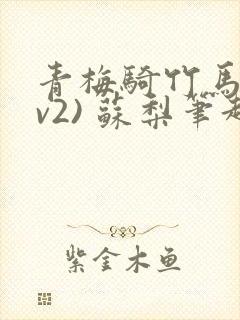 青梅騎竹馬
v2) 蘇梨筆趣
紫金木鱼